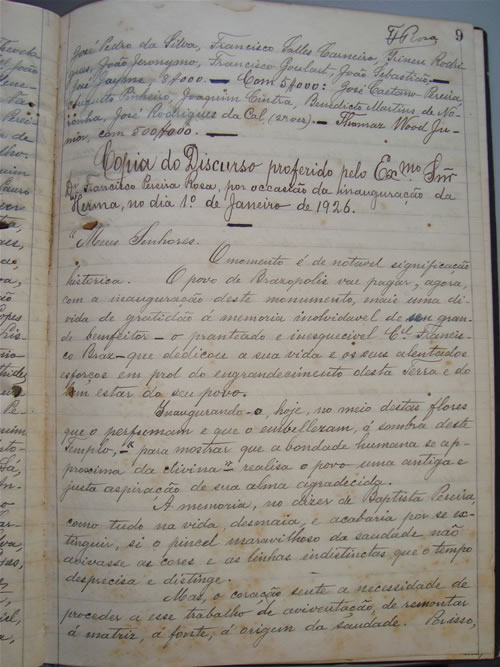 9
José Pedro da Silva, Francisco Salles Carneiro, Irineu Rodri-
gues, João Jeronymo, Francisco Goulart, João Sebastião,
José Gayone, 8$000. — Com 5$000: José Caetano Pereira
Augusto Pinheiro, Joaquim Cintra, Benedicto Martins de No-
ronha, José Rodrigues da Cal (2ª vez). — Thomaz Wood Ju-
nior, com 500$000.
Copia do Discurso proferido pelo Exmo. Snr.
Dr. Francisco Pereira Rosa, por occasião da inauguração da
Herma, no dia 1º. de Janeiro de 1926.
"Meus Senhores.
O momento é de notavel significação
historica. O povo de Brazopolis vae pagar, agora,
com a inauguração deste monumento, mais uma di-
vida de gratidão á memoria inolvidavel de seu gran-
de bemfeitor — o pranteado e inesquecivel Cel. Francis-
co Braz — que dedicou a sua vida e os seus alentados
esforços em prol do engrandecimento desta terra e do
bem estar do seu povo.
Inaugurando-o, hoje, no meio destas flores
que o perfumam e que o embellezam, á sombra deste
Templo, — "para mostrar que a bondade humana se ap-
proxima da divina" — realisa o povo uma antiga e
justa aspiração de sua alma agradecida.
A memoria, no dizer de Baptista Pereira,
como tudo na vida, desmaia, e acabaria por se ex-
tinguir, si o pincel maravilhoso da saudade não
avivasse as cores e as linhas indistinctas que o tempo
desprecisa e distinge.
Mas, o coração sente a necessidade de
proceder a esse trabalho de aviventação, de remontar
á matriz, á fonte, á origem da saudade. Porisso,